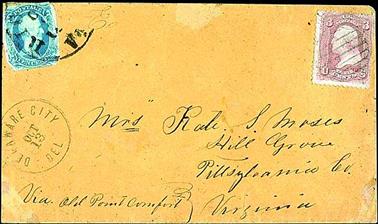 VA
3 3
DELAWARE CITY
OCT
13
DEL
Mrs Kate S. Moses
Hill Grove
Pittsylvania Co.
Via. Old Point Comfort Virginia